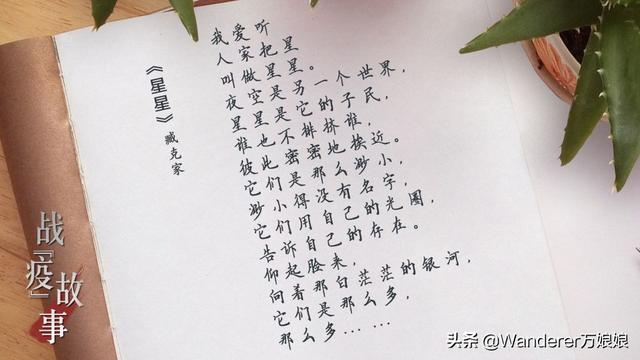 《星星》
臧克家
我爱听
人家把星
叫做星星。
夜空是另一个世界，
星星是它的子民，
谁也不排挤谁，
彼此密密地挨近。
它们是那么渺小，
渺小得没有名字，
它们用自己的光圈，
告诉自己的存在。
仰起脸来，
向着那白茫茫的银河，
它们是那么多，
那么多……
战『疫』故事
头条 @Wanderer万娘娘